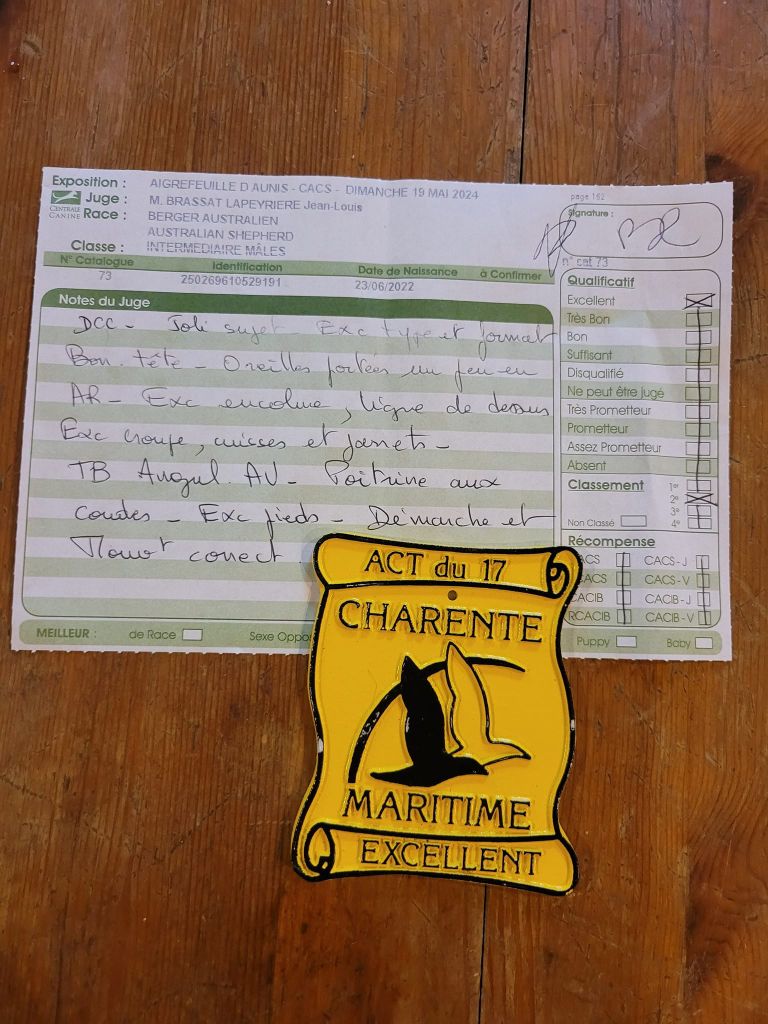 Exposition : AIGREFEUILLE D AUNIS - CACS - DIMANCHE 19 MAI 2024
page 162
CENTRALE CANINE
Juge : M. BRASSAT LAPEYRIERE Jean-Louis
Signature :
Race : BERGER AUSTRALIEN
AUSTRALIAN SHEPHERD
Classe : INTERMEDIAIRE MÂLES
n° cat 73
N° Catalogue Identification Date de Naissance à Confirmer
73 250269610529191 23/06/2022
Notes du Juge
DCC - Joli sujet Exc type et format
Bon. tête - Oreilles portées un peu en
AR - Exc encolure, ligne de dessus
Exc croupe, cuisses et jarrets -
TB Angul. AV - Poitrine aux
coudes - Exc pieds - Démarche et
Mouvt correct
Qualificatif
Excellent
Très Bon
Bon
Suffisant
Disqualifié
Ne peut être jugé
Très Prometteur
Prometteur
Assez Prometteur
Absent
Classement 1er
2e
3e
Non Classé 4e
Récompense
CACS CACS-J
CACS CACS-V
CACIB CACIB-J
RCACIB CACIB-V
MEILLEUR : de Race Sexe Oppo Puppy Baby
ACT du 17
CHARENTE
MARITIME
EXCELLENT